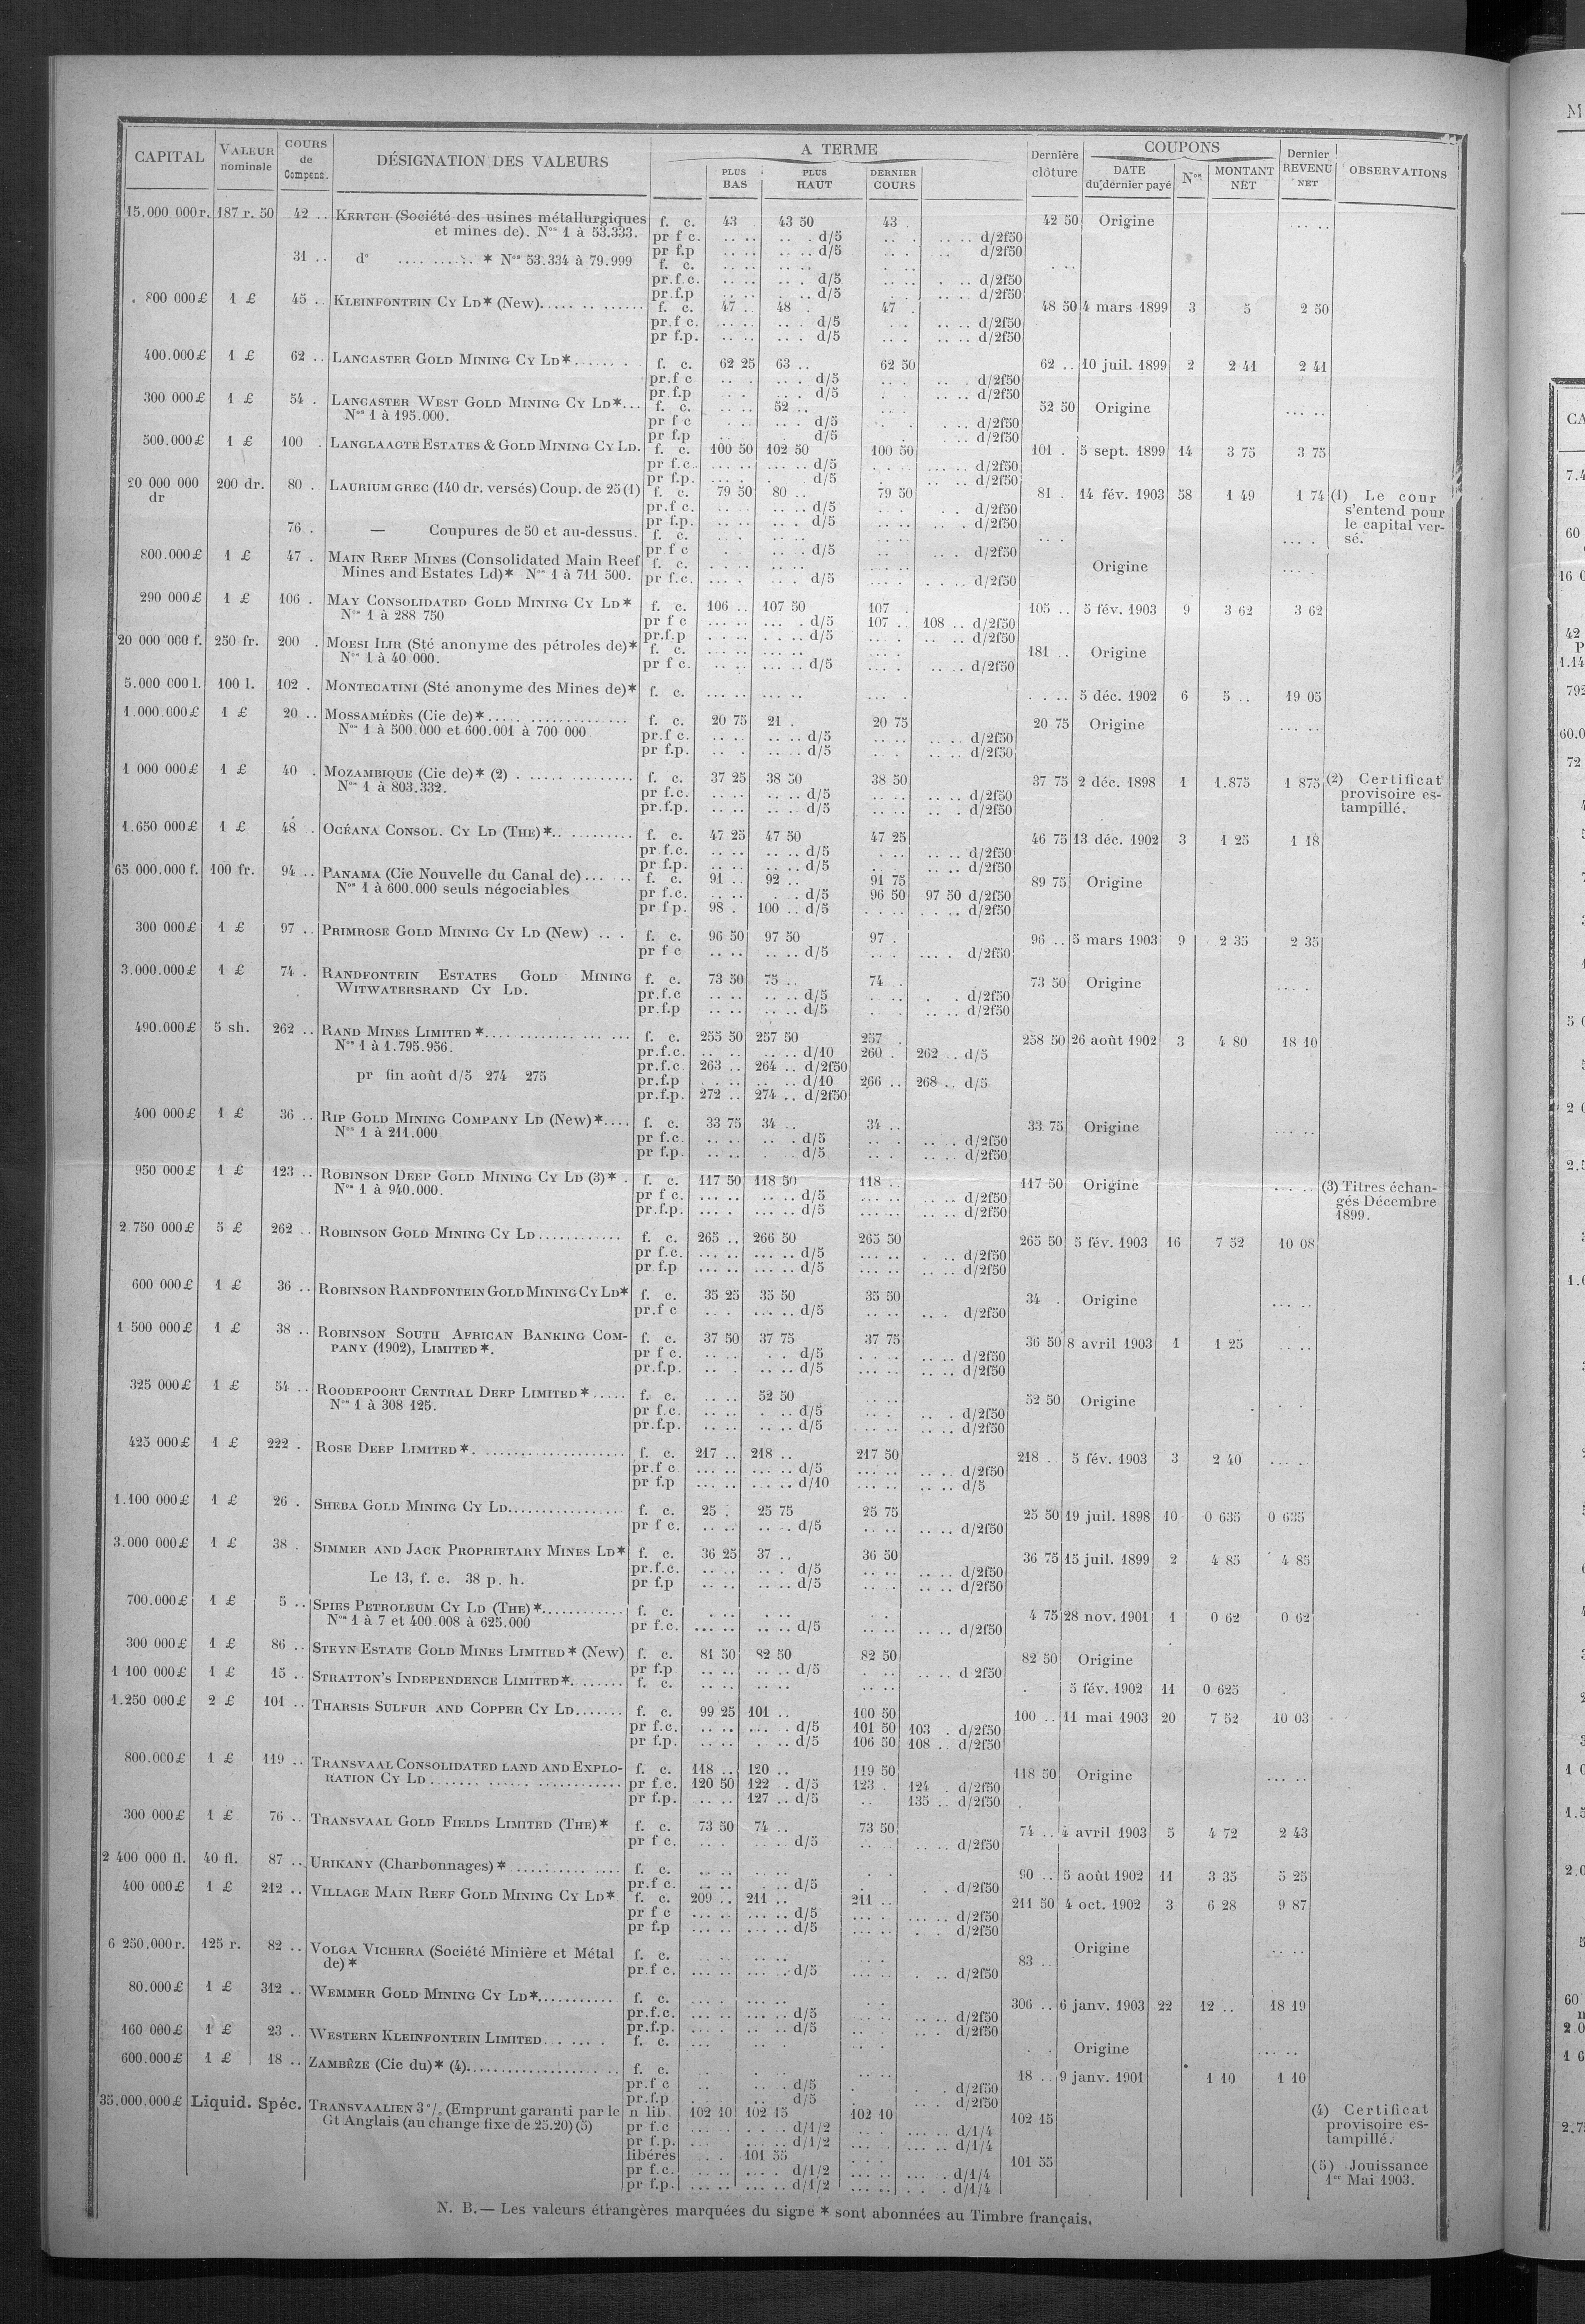 CAPITAL VALEUR nominale COURS de Compens. DÉSIGNATION DES VALEURS A TERME PLUS BAS PLUS HAUT DERNIER COURS Dernière clôture COUPONS DATE du dernier payé Nos MONTANT NET Dernier REVENU NET OBSERVATIONS
15.000 000 r. 187 r. 50 42 .. KERTCH (Société des usines métallurgiques f. c. 43 43 50 43 . 42 50 Origine
et mines de). Nos 1 à 53.333. pr f c. d/5 d/2f50
pr f.p d/5 d/2f50
31 .. do * Nos 53.334 à 79.999 f. c.
pr.f.c. d/5 d/2f50
pr.f.p d/5 d/2f50
800 000£ 1 £ 45 . KLEINFONTEIN CY LD* (New) f. c. 47 . 48 . 47 . 48 50 4 mars 1899 3 5 2 50
pr.f c. d/5 d/2f50
pr f.p. d/5 d/2f50
400.000£ 1 £ 62 .. LANCASTER GOLD MINING CY LD* f. c. 62 25 63 .. 62 50 62 .. 10 juil. 1899 2 2 41 2 41
pr.f c d/5 d/2f50
pr f.p d/5 d/2f50
300 000£ 1 £ 54 . LANCASTER WEST GOLD MINING CY LD*... f. c. 52 .. 52 50 Origine
Nos 1 à 195.000. pr f c d/5 d/2f50
pr f.p d/5 d/2f50
500.000£ 1 £ 100 . LANGLAAGTE ESTATES & GOLD MINING CY LD. f. c. 100 50 102 50 100 50 101 . 5 sept. 1899 14 3 75 3 75
pr f.c. d/5 d/2f50
pr f.p. d/5 d/2f50
20 000 000 dr 200 dr. 80 . LAURIUM GREC (140 dr. versés) Coup. de 25 (1) f. c. 79 50 80 .. 79 50 81 . 14 fév. 1903 58 1 49 1 74 (1) Le cour
pr.f c. d/5 d/2f50 s'entend pour
pr f.p. d/5 d/2f50 le capital ver-
76 .. — Coupures de 50 et au-dessus. f. c. sé.
pr f c d/5 d/2f50
800.000£ 1 £ 47 . MAIN REEF MINES (Consolidated Main Reef f. c. Origine
Mines and Estates Ld)* Nos 1 à 711 500. pr f.c. d/5 d/2f50
290 000£ 1 £ 106 . MAY CONSOLIDATED GOLD MINING CY LD* f. c. 106 .. 107 50 107 . 105 .. 5 fév. 1903 9 3 62 3 62
Nos 1 à 288 750 pr f c d/5 107 .. 108 .. d/2f50
pr.f.p d/5 d/2f50
20 000 000 f. 250 fr. 200 . MOESI ILIR (Sté anonyme des pétroles de)* f. c. 181 .. Origine
Nos 1 à 40 000. pr f c. d/5 d/2f50
5.000 000 l. 100 l. 102 . MONTECATINI (Sté anonyme des Mines de)* f. c. 5 déc. 1902 6 5 .. 19 05
1.000.000£ 1 £ 20 .. MOSSAMÉDÈS (Cie de)* f. c. 20 75 21 . 20 75 20 75 Origine
Nos 1 à 500.000 et 600.001 à 700 000 pr.f c. d/5 d/2f50
pr f.p. d/5 d/2f50
1 000 000£ 1 £ 40 . MOZAMBIQUE (Cie de)* (2) f. c. 37 25 38 50 38 50 37 75 2 déc. 1898 1 1.875 1 875 (2) Certificat
Nos 1 à 803.332. pr f.c. d/5 d/2f50 provisoire es-
pr.f.p. d/5 d/2f50 tampillé.
1.650 000£ 1 £ 48 . OCÉANA CONSOL. CY LD (THE)* f. c. 47 25 47 50 47 25 46 75 13 déc. 1902 3 1 25 1 18
pr f.c. d/5 d/2f50
pr f.p. d/5 d/2f50
65 000.000 f. 100 fr. 94 .. PANAMA (Cie Nouvelle du Canal de) f. c. 91 .. 92 .. 91 75 89 75 Origine
Nos 1 à 600.000 seuls négociables pr f.c. d/5 96 50 97 50 d/2f50
pr f p. 98 . 100 .. d/5 d/2f50
300 000£ 1 £ 97 .. PRIMROSE GOLD MINING CY LD (New) f. c. 96 50 97 50 97 . 96 .. 5 mars 1903 9 2 35 2 35
pr f c d/5 d/2f50
3.000.000£ 1 £ 74 . RANDFONTEIN ESTATES GOLD MINING f. c. 73 50 75 .. 74 .. 73 50 Origine
WITWATERSRAND CY LD. pr.f.c d/5 d/2f50
pr.f.p d/5 d/2f50
490.000£ 5 sh. 262 .. RAND MINES LIMITED* f. c. 255 50 257 50 257 . 258 50 26 août 1902 3 4 80 18 10
Nos 1 à 1.795.956. pr.f.c. d/10 260 . 262 .. d/5
pr.f.c. 263 .. 264 .. d/2f50
pr fin août d/5 274 275 pr.f.p d/10 266 .. 268 .. d/5
pr.f.p. 272 .. 274 .. d/2f50
400 000£ 1 £ 36 .. RIP GOLD MINING COMPANY LD (New)*.... f. c. 33 75 34 .. 34 .. 33 75 Origine
Nos 1 à 211.000 pr f.c. d/5 d/2f50
pr f.p. d/5 d/2f50
950 000£ 1 £ 123 .. ROBINSON DEEP GOLD MINING CY LD (3)* . f. c. 117 50 118 50 118 .. 117 50 Origine (3) Titres échan-
Nos 1 à 940.000. pr f c. d/5 d/2f50 gés Décembre
pr.f.p. d/5 d/2f50 1899.
2 750 000£ 5 £ 262 .. ROBINSON GOLD MINING CY LD f. c. 265 .. 266 50 265 50 265 50 5 fév. 1903 16 7 52 10 08
pr f.c. d/5 d/2f50
pr f.p d/5 d/2f50
600 000£ 1 £ 36 .. ROBINSON RANDFONTEIN GOLD MINING CY LD* f. c. 35 25 35 50 35 50 34 . Origine
pr.f c d/5 d/2f50
1 500 000£ 1 £ 38 .. ROBINSON SOUTH AFRICAN BANKING COM- f. c. 37 50 37 75 37 75 36 50 8 avril 1903 1 1 25
PANY (1902), LIMITED*. pr f c. d/5 d/2f50
pr.f.p. d/5 d/2f50
325 000£ 1 £ 54 .. ROODEPOORT CENTRAL DEEP LIMITED* f. c. 52 50 52 50 Origine
Nos 1 à 308 125. pr f.c. d/5 d/2f50
pr.f.p. d/5 d/2f50
425 000£ 1 £ 222 . ROSE DEEP LIMITED* f. c. 217 .. 218 .. 217 50 218 .. 5 fév. 1903 3 2 40
pr.f c d/5 d/2f50
pr f.p d/10 d/5
1.100 000£ 1 £ 26 . SHEBA GOLD MINING CY LD f. c. 25 . 25 75 25 75 25 50 19 juil. 1898 10 0 635 0 635
pr f c. d/5 d/2f50
3.000 000£ 1 £ 38 . SIMMER AND JACK PROPRIETARY MINES LD* f. c. 36 25 37 .. 36 50 36 75 15 juil. 1899 2 4 85 4 85
pr.f.c. d/5 d/2f50
Le 13, f. c. 38 p. h. pr f.p d/5 d/2f50
700.000£ 1 £ 5 .. SPIES PETROLEUM CY LD (THE)* f. c. 4 75 28 nov. 1901 1 0 62 0 62
Nos 1 à 7 et 400.008 à 625.000 pr f.c. d/5 d/2f50
300 000£ 1 £ 86 .. STEYN ESTATE GOLD MINES LIMITED* (New) f. c. 81 50 82 50 82 50 82 50 Origine
pr f.p d/5 d 2f50
1 100 000£ 1 £ 15 .. STRATTON'S INDEPENDENCE LIMITED* f. c. 5 fév. 1902 11 0 625
1.250 000£ 2 £ 101 .. THARSIS SULFUR AND COPPER CY LD f. c. 99 25 101 .. 100 50 100 .. 11 mai 1903 20 7 52 10 03
pr f.c. d/5 101 50 103 . d/2f50
pr f.p. d/5 106 50 108 .. d/2f50
800.000£ 1 £ 119 .. TRANSVAAL CONSOLIDATED LAND AND EXPLO- f. c. 118 .. 120 .. 119 50 118 50 Origine
RATION CY LD pr f.c. 120 50 122 . d/5 123 . 124 . d/2f50
pr f.p. 127 .. d/5 135 .. d/2f50
300 000£ 1 £ 76 .. TRANSVAAL GOLD FIELDS LIMITED (THE)* f. c. 73 50 74 .. 73 50 74 .. 4 avril 1903 5 4 72 2 43
pr f c. d/5 d/2f50
2 400 000 fl. 40 fl. 87 .. URIKANY (Charbonnages)* f. c. 90 .. 5 août 1902 11 3 35 5 25
pr.f c. d/5 d/2f50
400 000£ 1 £ 212 .. VILLAGE MAIN REEF GOLD MINING CY LD* f. c. 209 .. 211 .. 211 .. 211 50 4 oct. 1902 3 6 28 9 87
pr f c d/5 d/2f50
pr f.p d/5 d/2f50
6 250.000 r. 125 r. 82 .. VOLGA VICHERA (Société Minière et Métal f. c. 83 .. Origine
de)* pr f c. d/5 d/2f50
80.000£ 1 £ 312 .. WEMMER GOLD MINING CY LD* f. c. 306 .. 6 janv. 1903 22 12 .. 18 19
pr.f.c. d/5 d/2f50
pr.f.p. d/5 d/2f50
160 000£ 1 £ 23 . WESTERN KLEINFONTEIN LIMITED f. c. Origine
600.000£ 1 £ 18 .. ZAMBÈZE (Cie du)* (4) f. c. 18 .. 9 janv. 1901 1 10 1 10
pr.f c d/5 d/2f50
pr.f.p d/5 d/2f50
35.000.000£ Liquid. Spéc. TRANSVAALIEN 3 % (Emprunt garanti par le n lib. 102 10 102 15 102 10 102 15 (4) Certificat
Gt Anglais (au change fixe de 25.20) (5) pr f.c d/1/2 d/1/4 provisoire es-
pr f.p. d/1/2 d/1/4 tampillé.
libérés 101 55 101 55
pr f.c. d/1/2 d/1/4 (5) Jouissance
pr f.p. d/1/2 d/1/4 1er Mai 1903.
N. B.— Les valeurs étrangères marquées du signe * sont abonnées au Timbre français.